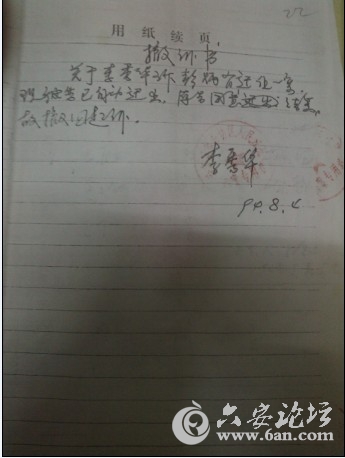 22
用纸续页
撤诉书
关于李秀华诉韩炳官迁让一案,
现被告已自动迁出,原告同意
故撤回起诉。
李秀华
94.8.4
六安论坛
www.6an.com